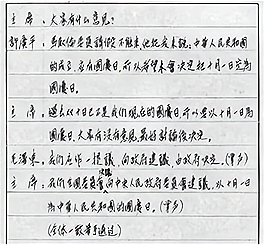 主席：大家有什么意见？
许广平：马叙伦委员请假不能来，他托我来说，中华人民共和国
的成立，应有国庆日，所以希望本会决定把十月一日定为
国庆日。
主席：过去以十日
我们国庆日，所以以十月一日为
国庆日，大家有没有意见，
讨论后决定。
毛泽东：我们应作一提议，向政府建议，由政府决定。
主席：我们全国委员会向中央人民政府委员会建议，以十月一日
为中华人民共和国的国庆日。
（全体一致举手通过）